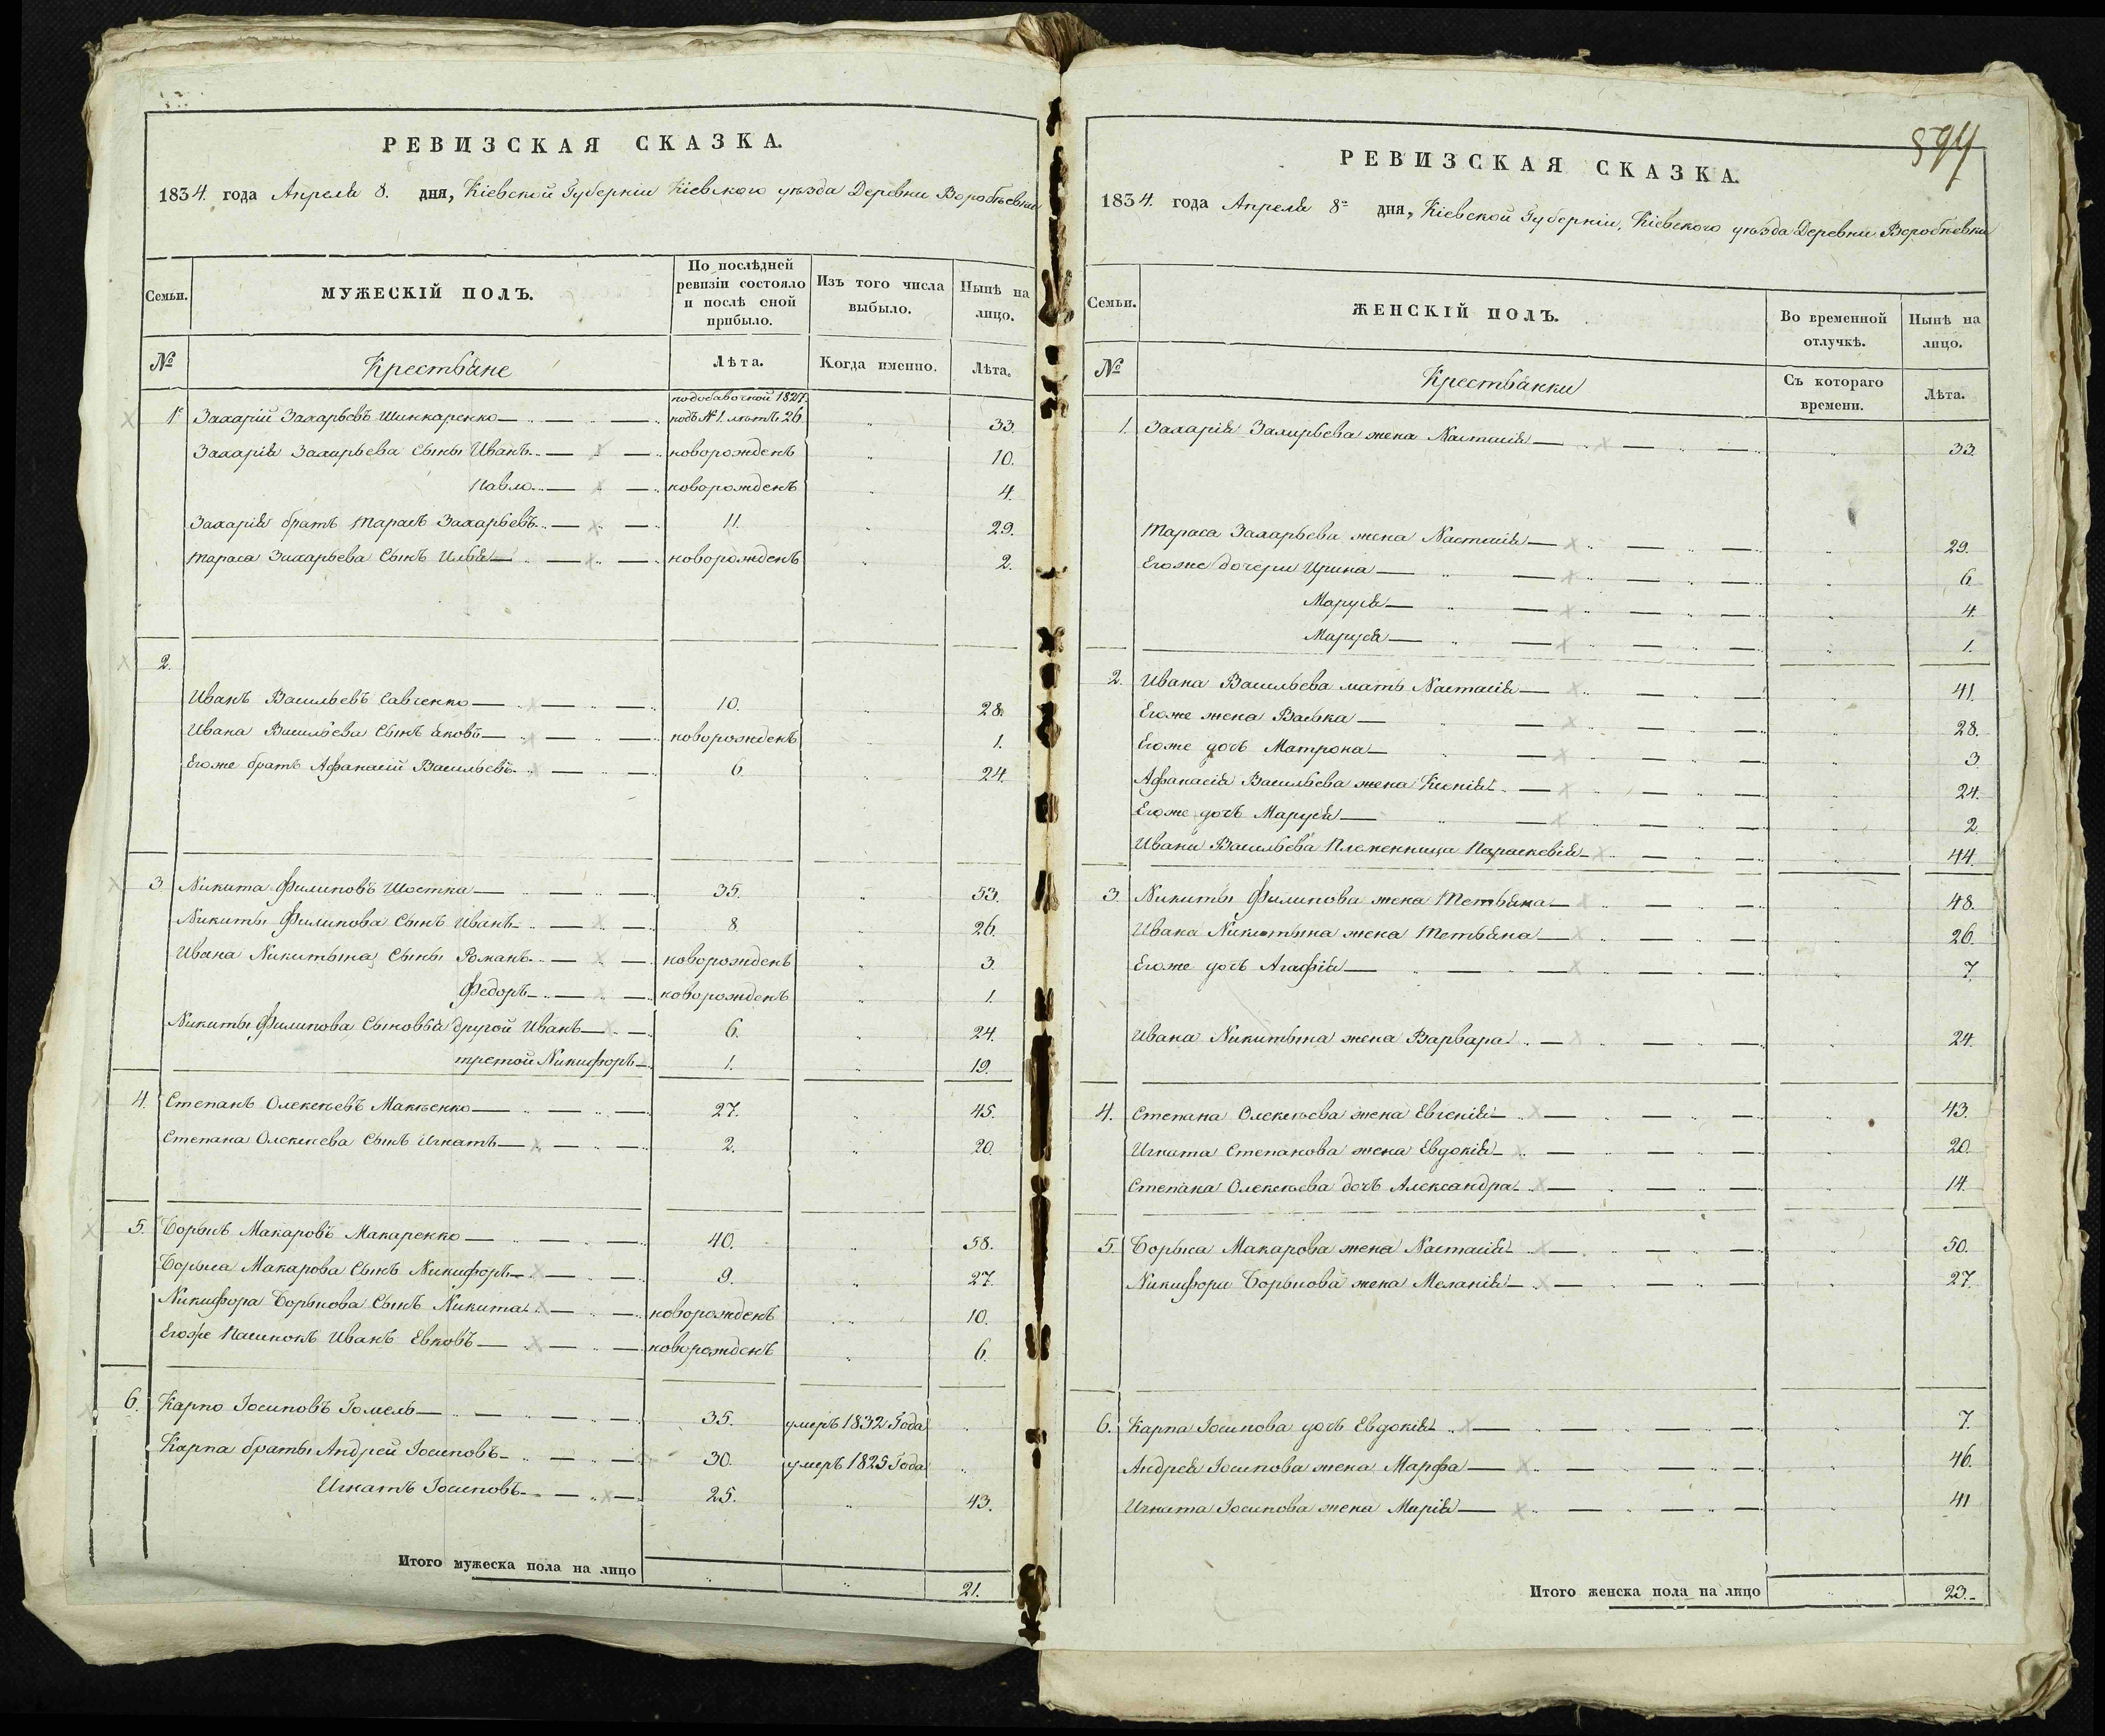 РЕВИЗСКАЯ СКАЗКА.
1834. года Апреля 8. дня, Кіевской Губерніи Кіевского уѣзда Деревни Воробьевки
Семьи.
МУЖЕСКІЙ ПОЛЪ.
По послѣдней ревизіи состояло и послѣ оной прибыло.
Изъ того числа выбыло.
Нынѣ на лицо.
№ Крестьяне Лѣта. Когда именно. Лѣта.
подобавочной 1827.
1. Захарій Захарьевъ Шинкаренко подъ №1. лѣтъ 26 " 33.
Захарія Захарьева Сыны Иванъ новорожденъ " 10.
Павло новорожденъ " 4.
Захарія братъ Тарасъ Захарьевъ 11. " 29.
Тараса Захарьева Сынъ Илья новорожденъ " 2.
2.
Иванъ Васильевъ Савченко 10. " 28.
Ивана Васильева Сынъ Яковъ новорожденъ " 1.
Егоже братъ Афанасій Васильевъ 6. " 24.
3. Никита Филиповъ Шостка 35. " 53.
Никиты Филипова Сынъ Иванъ 8. " 26.
Ивана Никитына Сыны Романъ новорожденъ " 3.
Федоръ новорожденъ " 1.
Никиты Филипова Сыновья другой Иванъ 6. " 24.
третой Никифоръ 1. " 19.
4. Степанъ Олексѣевъ 27. " 45.
Степана Олексѣева Сынъ Игнатъ 2. " 20.
5. Борысъ Макаровъ Макаренко 40. " 58.
Борыса Макарова Сынъ Никифоръ 9. " 27.
Никифора Борысова Сынъ Никита новорожденъ " 10.
Егоже Пасинокъ Иванъ новорожденъ " 6.
6. Карпо Іосиповъ Гомель 35. умеръ 1832 Года "
Карпа братья Андрей Іосиповъ 30. умеръ 1825 Года "
Игнатъ Іосиповъ 25. " 43.
Итого мужеска пола на лицо " " 21.
894
РЕВИЗСКАЯ СКАЗКА.
1834. года Апреля 8 дня, Кіевской Губерніи, Кіевского уѣзда Деревни Воробьевки
Семьи.
ЖЕНСКІЙ ПОЛЪ.
Во временной отлучкѣ.
Нынѣ на лицо.
№ Крестьянки Съ котораго времени. Лѣта.
1. Захарія Захарьева жена Настасія " 33.
Тараса Захарьева жена Настасія " 29.
Егоже дочери Ирина " 6
Маруся " 4.
Маруся " 1.
2. Ивана Васильева мать Настасія " 41.
Егоже жена Васька " 28.
Егоже дочь Матрона " 3
Афанасія Васильева жена " 24.
Егоже дочь Маруся " 2
Ивана Васильева Племенница Параскевія " 44.
3. Никиты Филипова жена Тетьяна " 48.
Ивана Никитына жена Тетьяна " 26.
Егоже дочь Агафія " 7
Ивана Никитына жена Варвара " 24.
4. Степана Олексѣева жена Евгенія " 43.
Игната Степанова жена Евдокія " 20.
Степана Олексѣева дочъ Александра " 14.
5. Борыса Макарова жена Настасія " 50.
Никифора Борысова жена Меланія " 27.
6. Карпа Іосипова дочъ Евдокія " 7.
Андрея Іосипова жена Марфа " 46.
Игната Іосипова жена Марія " 41
Итого женска пола на лицо " 23.